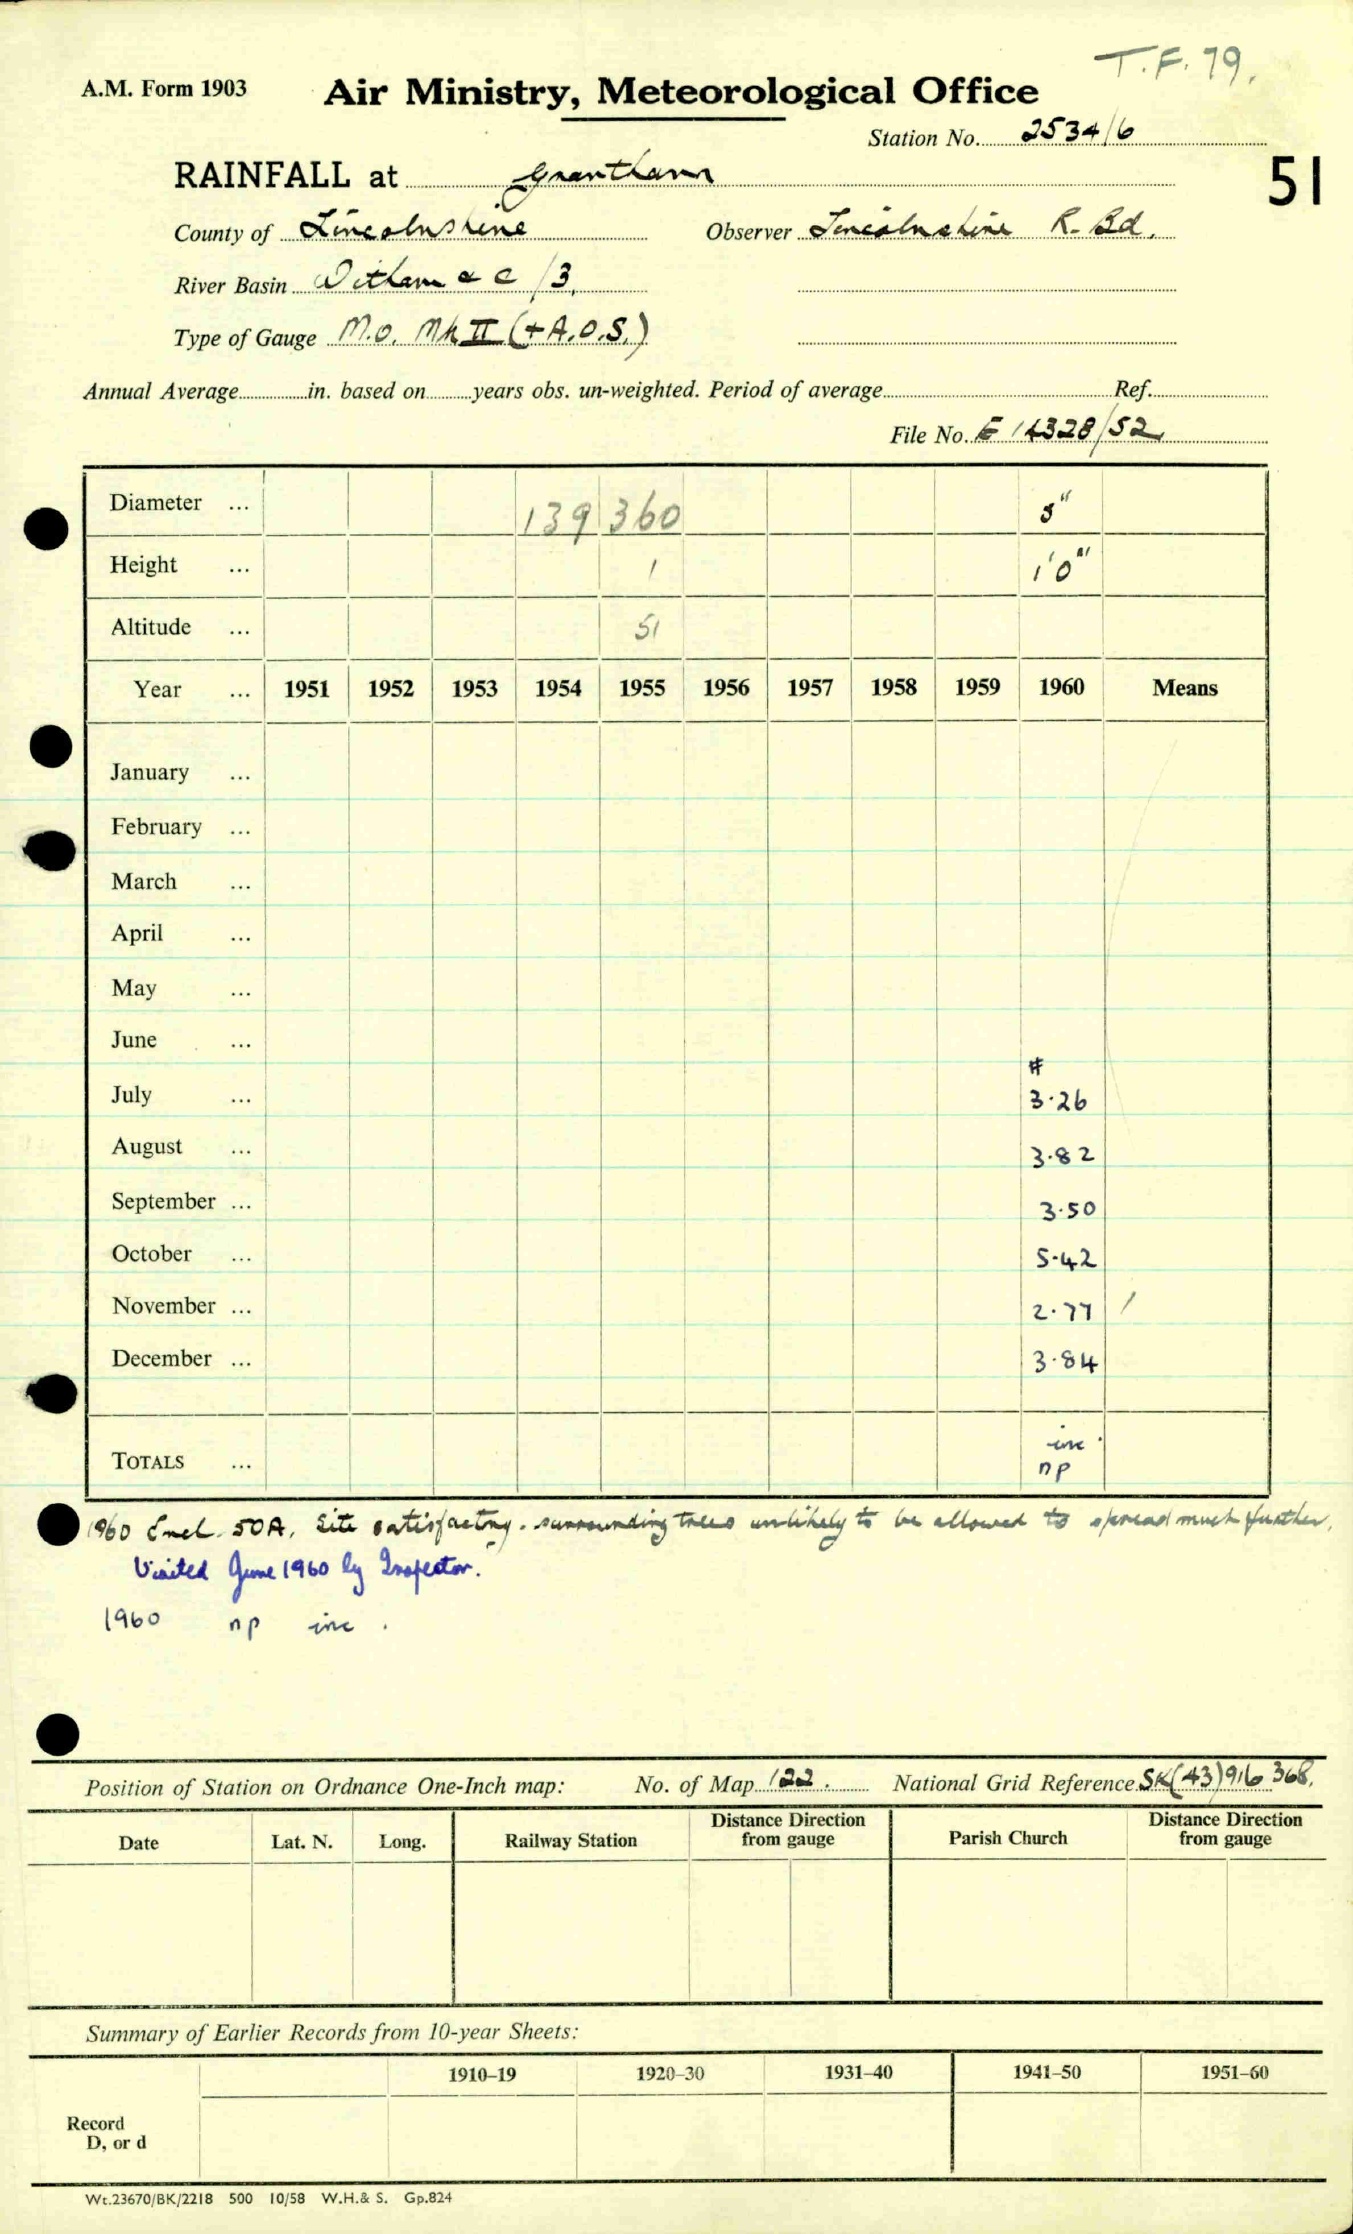 T.F. 79.
A.M. Form 1903 Air Ministry, Meteorological Office
Station No. 2534/6
RAINFALL at Grantham
51
County of Lincolnshire Observer Lincolnshire R. Bd.
River Basin Witham & c /3.
Type of Gauge M.O. Mk II (+A.O.S.)
Annual Average in. based on years obs. un-weighted. Period of average Ref.
File No. E 14328/52
Diameter ... 139 360 5"
Height ... 1 1'0"
Altitude ... 51
Year ... 1951 1952 1953 1954 1955 1956 1957 1958 1959 1960 Means
January ...
February ...
March ...
April ...
May ...
June ...
#
July ... 3.26
August ... 3.82
September ... 3.50
October ... 5.42
November ... 2.77 /
December ... 3.84
inc.
TOTALS ... np
1960 Encl. 50A. Site satisfactory. surrounding trees unlikely to be allowed to spread much further.
Visited June 1960 by Inspector.
1960 np inc.
Position of Station on Ordnance One-Inch map: No. of Map 122. National Grid Reference SK(43)916 368.
Date Lat. N. Long. Railway Station Distance Direction from gauge Parish Church Distance Direction from gauge
Summary of Earlier Records from 10-year Sheets:
1910–19 1920–30 1931–40 1941–50 1951–60
Record
D, or d
Wt.23670/BK/2218 500 10/58 W.H.& S. Gp.824